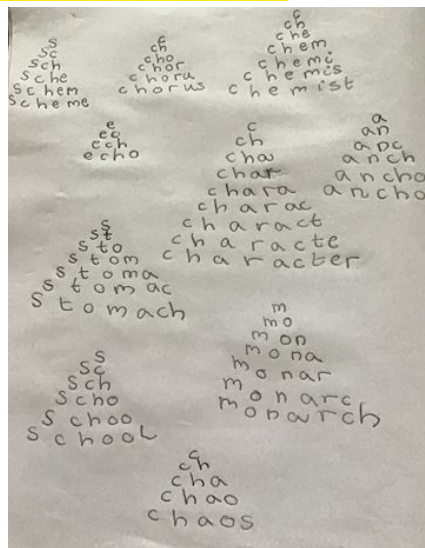 s
sc
sch
sche
schem
scheme
c
ch
cho
chor
choru
chorus
c
ch
che
chem
chemi
chemis
chemist
e
ec
ech
echo
c
ch
cha
char
chara
charac
charact
characte
character
a
an
anc
anch
ancho
ancho
s
st
sto
stom
stoma
stomac
stomach
m
mo
mon
mona
monar
monarc
monarch
s
sc
sch
scho
schoo
school
c
ch
cha
chao
chaos